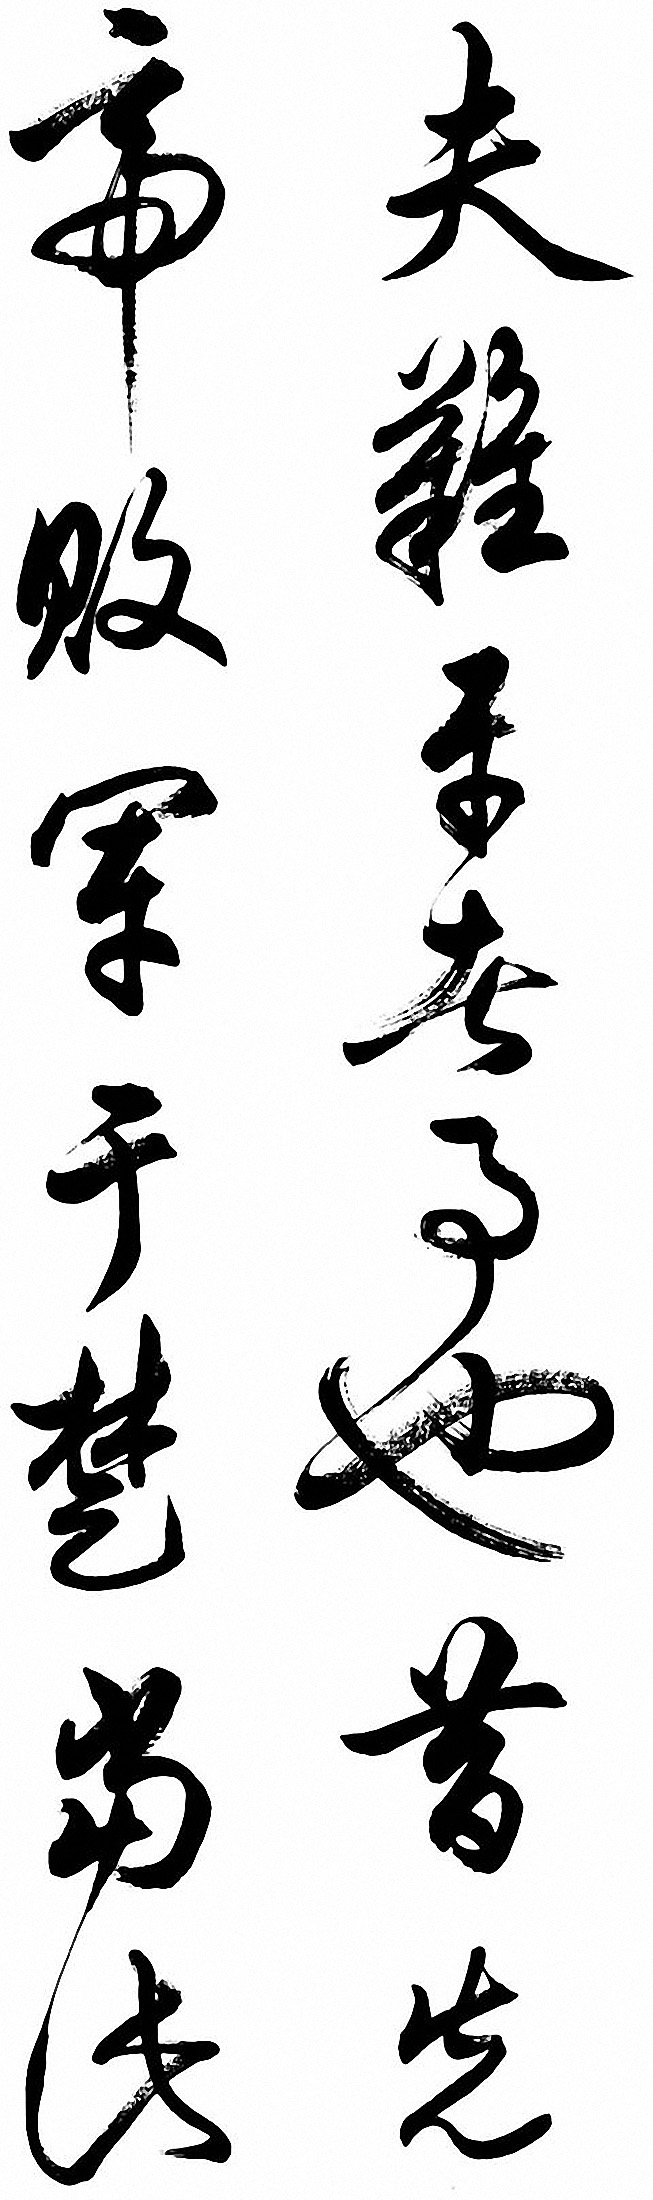 夫難平者事也昔先
帝敗軍于楚當此